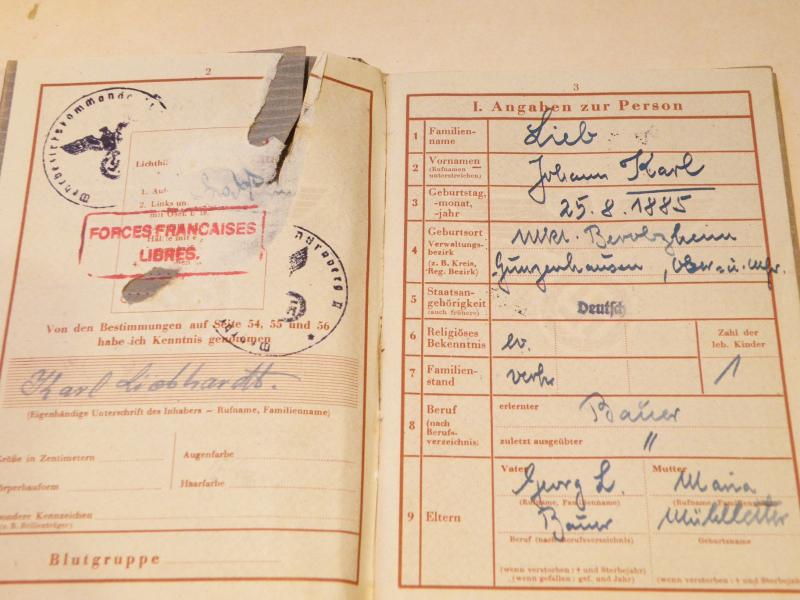 2
Wehrbezirkskommando
Lichtbil
1. Auf
2. Links un
mit Ösen
FORCES FRANÇAISES
LIBRES.
Nürnberg II
Von den Bestimmungen auf Seite 54, 55 und 56
habe ich Kenntnis genommen
Karl Liebhardt.
(Eigenhändige Unterschrift des Inhabers – Rufname, Familienname)
Größe in Zentimetern
Augenfarbe
örperbauform
Haarfarbe
sondere Kennzeichen
(z. B. Brillenträger)
Blutgruppe
3
I. Angaben zur Person
1 Familien-
name
Lieb
2 Vornamen
(Rufnamen
unterstreichen)
Johann Karl
3 Geburtstag,
-monat,
-jahr
25. 8. 1885
4 Geburtsort
Verwaltungs-
bezirk
(z. B. Kreis,
Reg. Bezirk)
Mkt. Berolzheim
Gunzenhausen, Ober- u. Mfr.
5 Staatsan-
gehörigkeit
(auch frühere)
Deutsch
6 Religiöses
Bekenntnis
ev.
Zahl der
leb. Kinder
7 Familien-
stand
verh.
1
8 Beruf
(nach
Berufs-
verzeichnis)
erlernter
Bauer
zuletzt ausgeübter
"
9 Eltern
Vater
Georg L.
(Rufname, Familienname)
Bauer
Beruf (nach Berufsverzeichnis)
(wenn verstorben: † und Sterbejahr)
(wenn gefallen: gef. und Jahr)
Mutter
Maria
(Rufname, Familienname)
Mühlleitter
Geburtsname
(wenn verstorben: † und Sterbejahr)